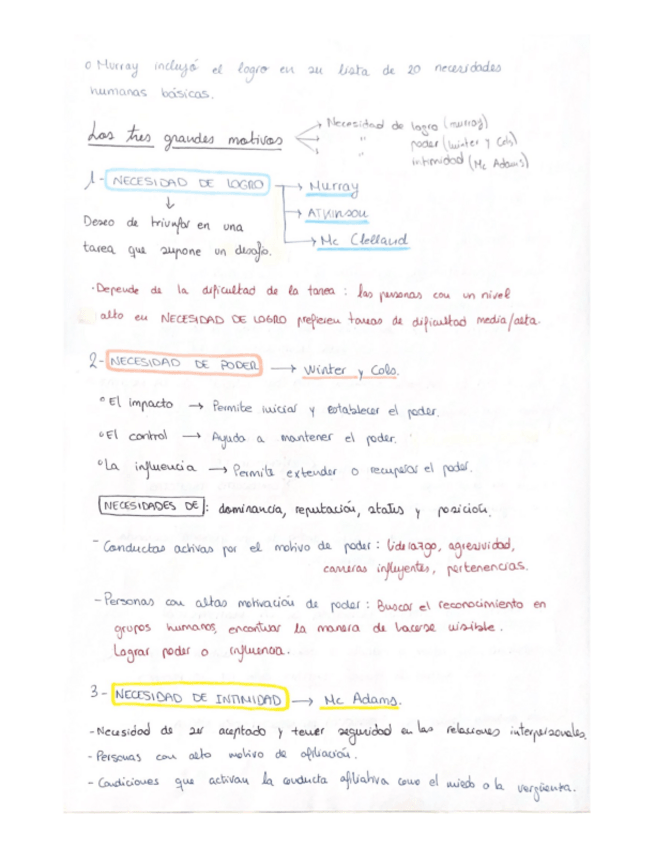 o Murray incluyó el logro en su lista de 20 necesidades
humanas básicas.
Los tres grandes motivos → Necesidad de logro (murray)
→ " poder (winter y Cols)
→ " intimidad (Mc Adams)
1- NECESIDAD DE LOGRO → Murray
→ ATKINSON
→ Mc Clelland
↓
Deseo de triunfar en una
tarea que supone un desafío.
·Depende de la dificultad de la tarea : las personas con un nivel
alto en NECESIDAD DE LOGRO prefieren tareas de dificultad media/alta.
2- NECESIDAD DE PODER → Winter y Cols.
º El impacto → Permite iniciar y establecer el poder.
º El control → Ayuda a mantener el poder.
º La influencia → Permite extender o recuperar el poder.
NECESIDADES DE : dominancia, reputación, status y posición.
- Conductas activas por el motivo de poder : liderazgo, agresividad,
carreras influyentes, pertenencias.
- Personas con altas motivación de poder : Buscar el reconocimiento en
grupos humanos, encontrar la manera de hacerse visible.
Lograr poder o influencia.
3- NECESIDAD DE INTIMIDAD → Mc Adams.
- Necesidad de ser aceptado y tener seguridad en las relaciones interpersonales.
- Personas con alto motivo de afiliación.
- Condiciones que activan la conducta afiliativa como el miedo o la vergüenza.